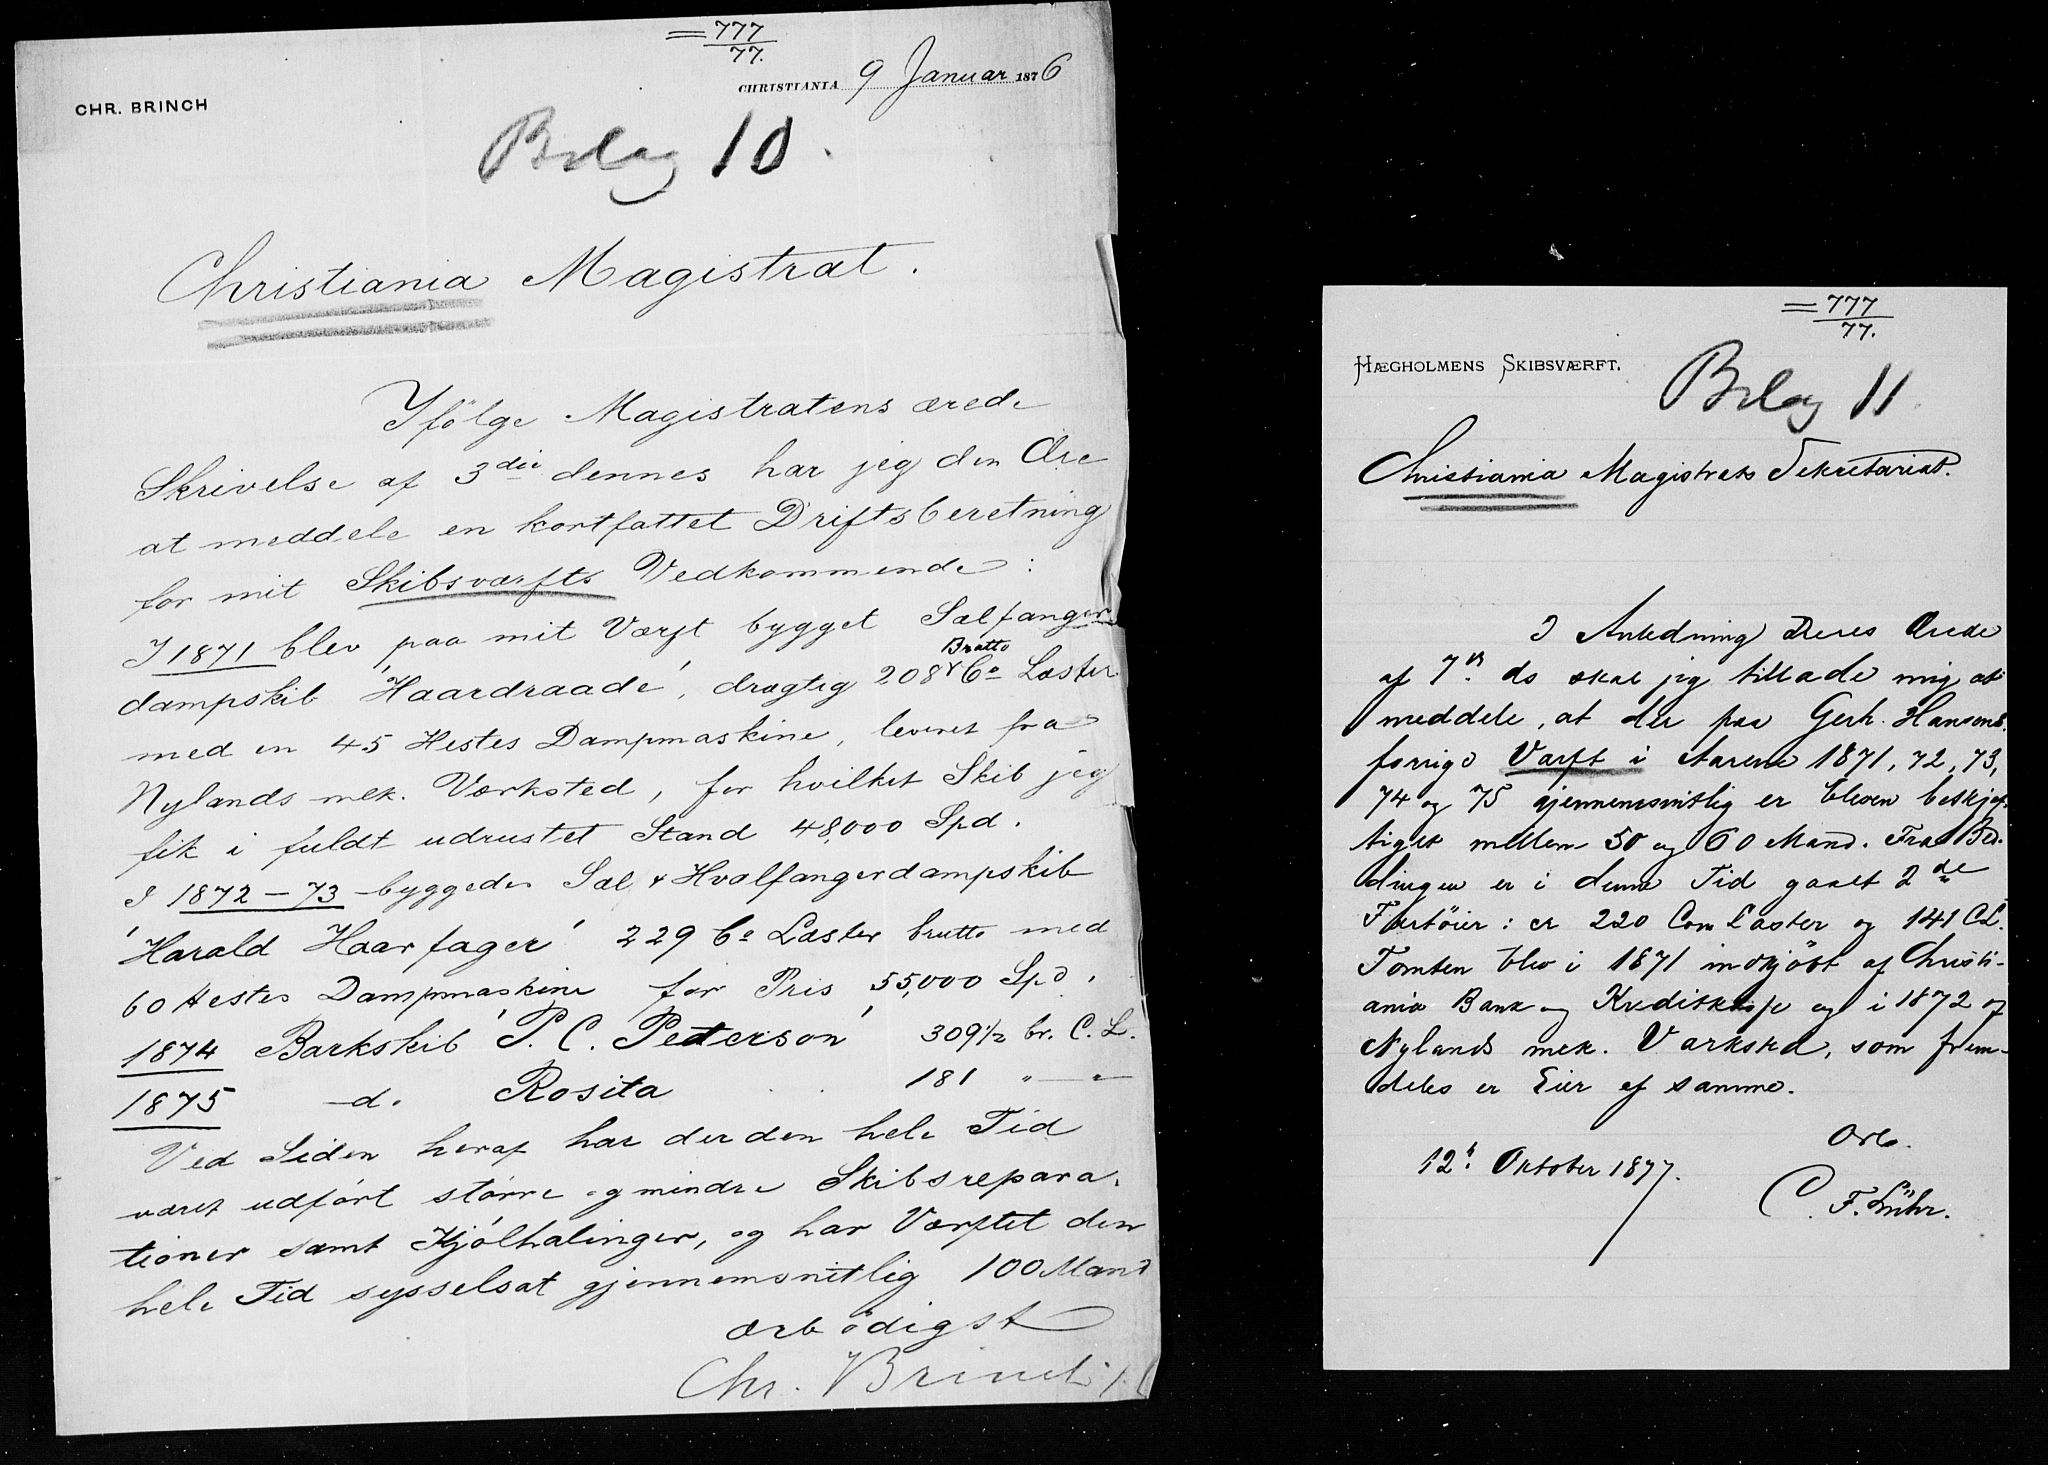 = 777/77.
CHRISTIANIA 9 Januar 1876
CHR. BRINCH
Bilag 10.
Christiania Magistrat.
Ifölge Magistratens ærede
Skrivelse af 3die dennes har jeg den Ære
at meddele en kortfattet Driftsberetning
for mit Skibsværfts Vedkommende:
I 1871 blev paa mit Værft bygget Sælfanger
Brutto
dampskib 'Haardraade', drægtig 208 Co Læster
med en 45 Hestes Dampmaskine, leveret fra
Nylands mek. Værksted, for hvilket Skib jeg
fik i fuldt udrustet Stand 48,000 Spd.
I 1872-73 byggedes Sæl & Hvalfangerdampskib
'Harald Haarfager' 229 Co Læster brutto med
60 Hestes Dampmaskine for Pris 55,000 Spd.
1874 Barkskib 'P. C. Peterson' 309 1/2 br. C. L.
1875 -d. Rosita 181 " — "
Ved Siden heraf har der den hele Tid
været udført större og mindre Skibsrepara-
tioner samt Kjölhalinger, og har Værftet den
hele Tid sysselsat gjennemsnitlig 100 Mand
ærbödigst
Chr. Brinch
= 777/77.
HÆGHOLMENS SKIBSVÆRFT.
Bilag 11
Christiania Magistrats Sekretariat.
I Anledning Deres Ærede
af 7de ds skal jeg tillade mig at
meddele, at der paa Gerh. Hansens
forrige Værft i Aarene 1871, 72, 73,
74 og 75 gjennemsnitlig er bleven beskjæf-
tiget mellem 50 og 60 Mand. Fra Bed-
dingen er i denne Tid gaaet 2de
Fartöier: er 220 Com Læster og 141 C.L.
Tomten blev i 1871 indkjöbt af Christi-
ania Bank og Kreditkasse og i 1872 af
Nylands mek. Værksted, som frem-
deles er Eier af samme.
Ærb.
12te Oktober 1877.
C. F. Lühr.